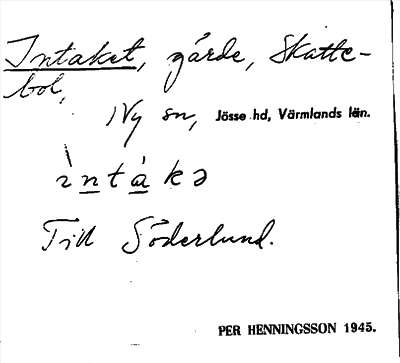 Intaket, gärde, Skatte-
bol,
Ny sn, Jösse hd, Värmlands län.
ìntákə
Till Söderlund.
PER HENNINGSSON 1945.